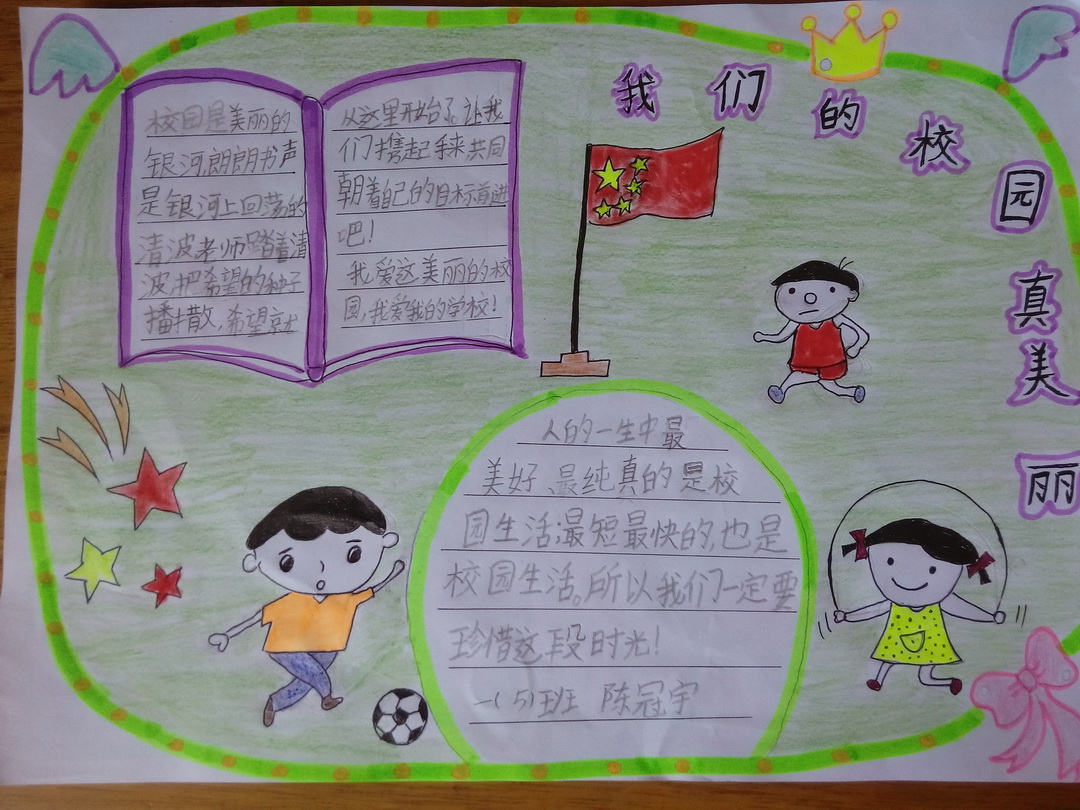 我们的校园真美丽
校园是美丽的
银河,朗朗书声
是银河上回荡的
清波老师踏着清
波,把希望的种子
播散,希望就
从这里开始了。让我
们携起手来共同
朝着自己的目标前进
吧!
我爱这美丽的校
园,我爱我的学校!
人的一生中最
美好、最纯真的是校
园生活;最短最快的,也是
校园生活。所以我们一定要
珍惜这段时光!
一(5)班 陈冠宇